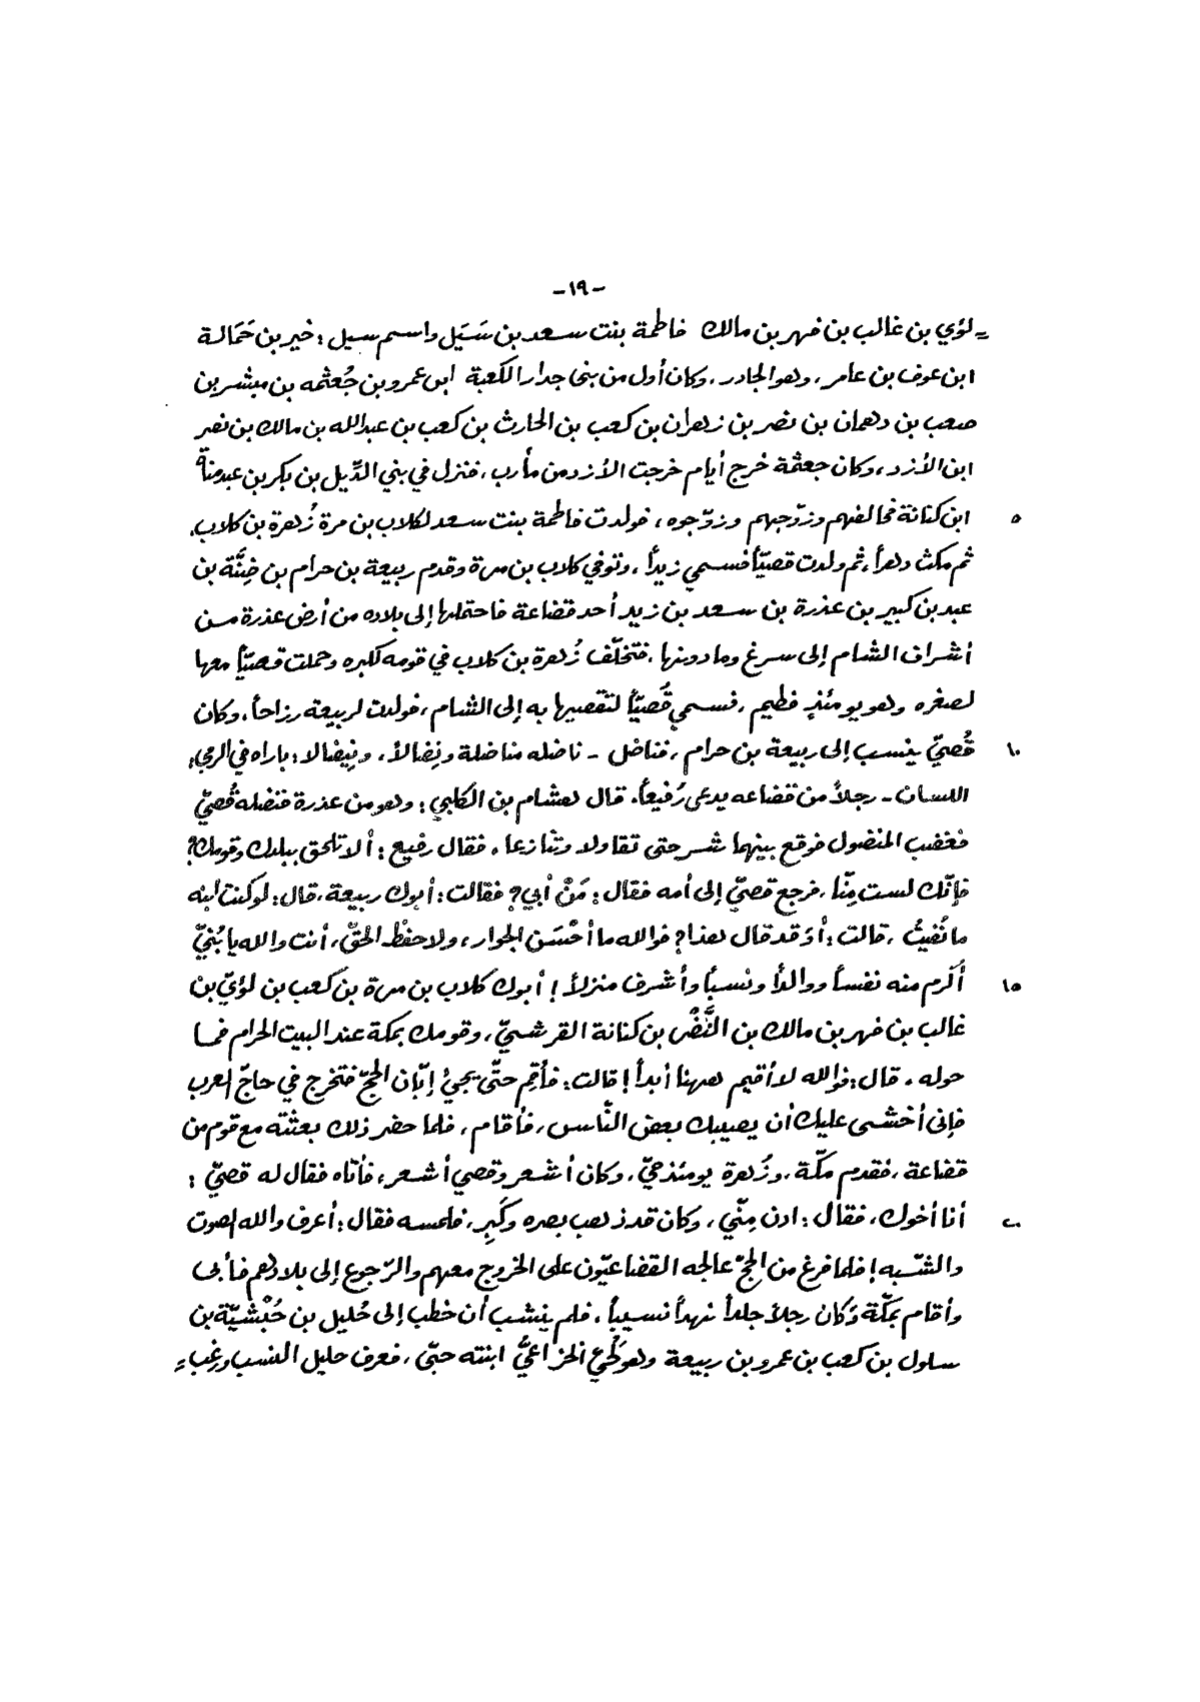 -١٩-
= لؤي بن غالب بن فهر بن مالك فاطمة بنت سعد بن سَيَل واسم سيل : خير بن حَمَالة
ابن عوف بن عامر، وهو الجادر، وكان أول من بنى جدار الكعبة ابن عمرو بن جُعثمه بن مبشر بن
صعب بن دهمان بن نصر بن زهران بن كعب بن الحارث بن كعب بن عبدالله بن مالك بن نصر
ابن الأزد، وكان جعثمة خرج أيام خرجت الأزد من مأرب، فنزل في بني الدِّيل بن بكر بن عبد مناة
٥ ابن كنانة فحالفهم وزوّجهم وزوّجوه، فولدت فاطمة بنت سعد لكلاب بن مرة زُهرة بن كلاب،
ثم مكث دهراً، ثم ولدت قصيّاً فسمي زيداً، وتوفي كلاب بن مرة وقدم ربيعة بن حرام بن ضِنَّة بن
عبد بن كبير بن عذرة بن سعد بن زيد أحد قضاعة فاحتملها إلى بلاده من أرض عذرة من
أشراف الشام إلى سرغ وما دونها، فتخلّف زُهرة بن كلاب في قومه لكبره وحملت قصيّاً معها
لصغره وهو يومئذٍ فطيم، فسمي قُصيّاً لتقصيها به إلى الشام، فولدت لربيعة رزاحاً، وكان
١٠ قُصيّ ينسب إلى ربيعة بن حرام، فناضل - ناضله مناضلة ونِضالاً، ونِيضالا: باراه في الرمي؛
اللسان - رجلاً من قضاعه يدعى رُفيعاً، قال هشام بن الكلبي: وهو من عذرة فنضله قُصيّ
فغضب المنضول فوقع بينهما شر حتى تقاولا وتنازعا، فقال رفيع: ألا تلحق ببلدك وقومك؟
فإنّك لست مِنّا، فرجع قصيّ إلى أمه فقال: مَنْ أبي؟ فقالت: أبوك ربيعة، قال: لو كنت ابنه
ما نُفيتُ، قالت: أوَ قد قال هذا؟ فوالله ما أحْسَن الجوار، ولا حفظ الحقّ، أنت والله يا بُنيّ
١٥ أكرم منه نفساً ووالداً ونسباً وأشرف منزلاً! أبوك كلاب بن مرة بن كعب بن لؤيّ بن
غالب بن فهر بن مالك بن النَّضْر بن كنانة القرشيّ، وقومك بمكة عند البيت الحرام فما
حوله، قال: فوالله لا أقيم ههنا أبداً! قالت: فأقِم حتّى يجيئ إبّان الحجّ فتخرج في حاجّ العرب
فإنى أخشى عليك أن يصيبك بعض النّاس، فأقام، فلما حضر ذلك بعثته مع قوم من
قضاعة، فقدم مكّة، وزُهرة يومئذ حيّ، وكان أشعر وقصي أشعر، فأتاه فقال له قصيّ :
٢٠ أنا أخوك، فقال: ادن مِنّي، وكان قد ذهب بصره وكَبِر، فلمسه فقال: أعرف والله الصوت
والشّبه! فلما فرغ من الحجّ عالجه القضاعيّون على الخروج معهم والرّجوع إلى بلادهم فأبى
وأقام بمكّة وَكان رجلاً جلداً نهداً نسيباً، فلم ينشب أن خطب إلى حُليل بن حُبْشيّة بن
سلول بن كعب بن عمرو بن ربيعة وهو لُحَيّ الخزاعيُّ ابنته حبّى، فعرف حليل النسب ورغب =